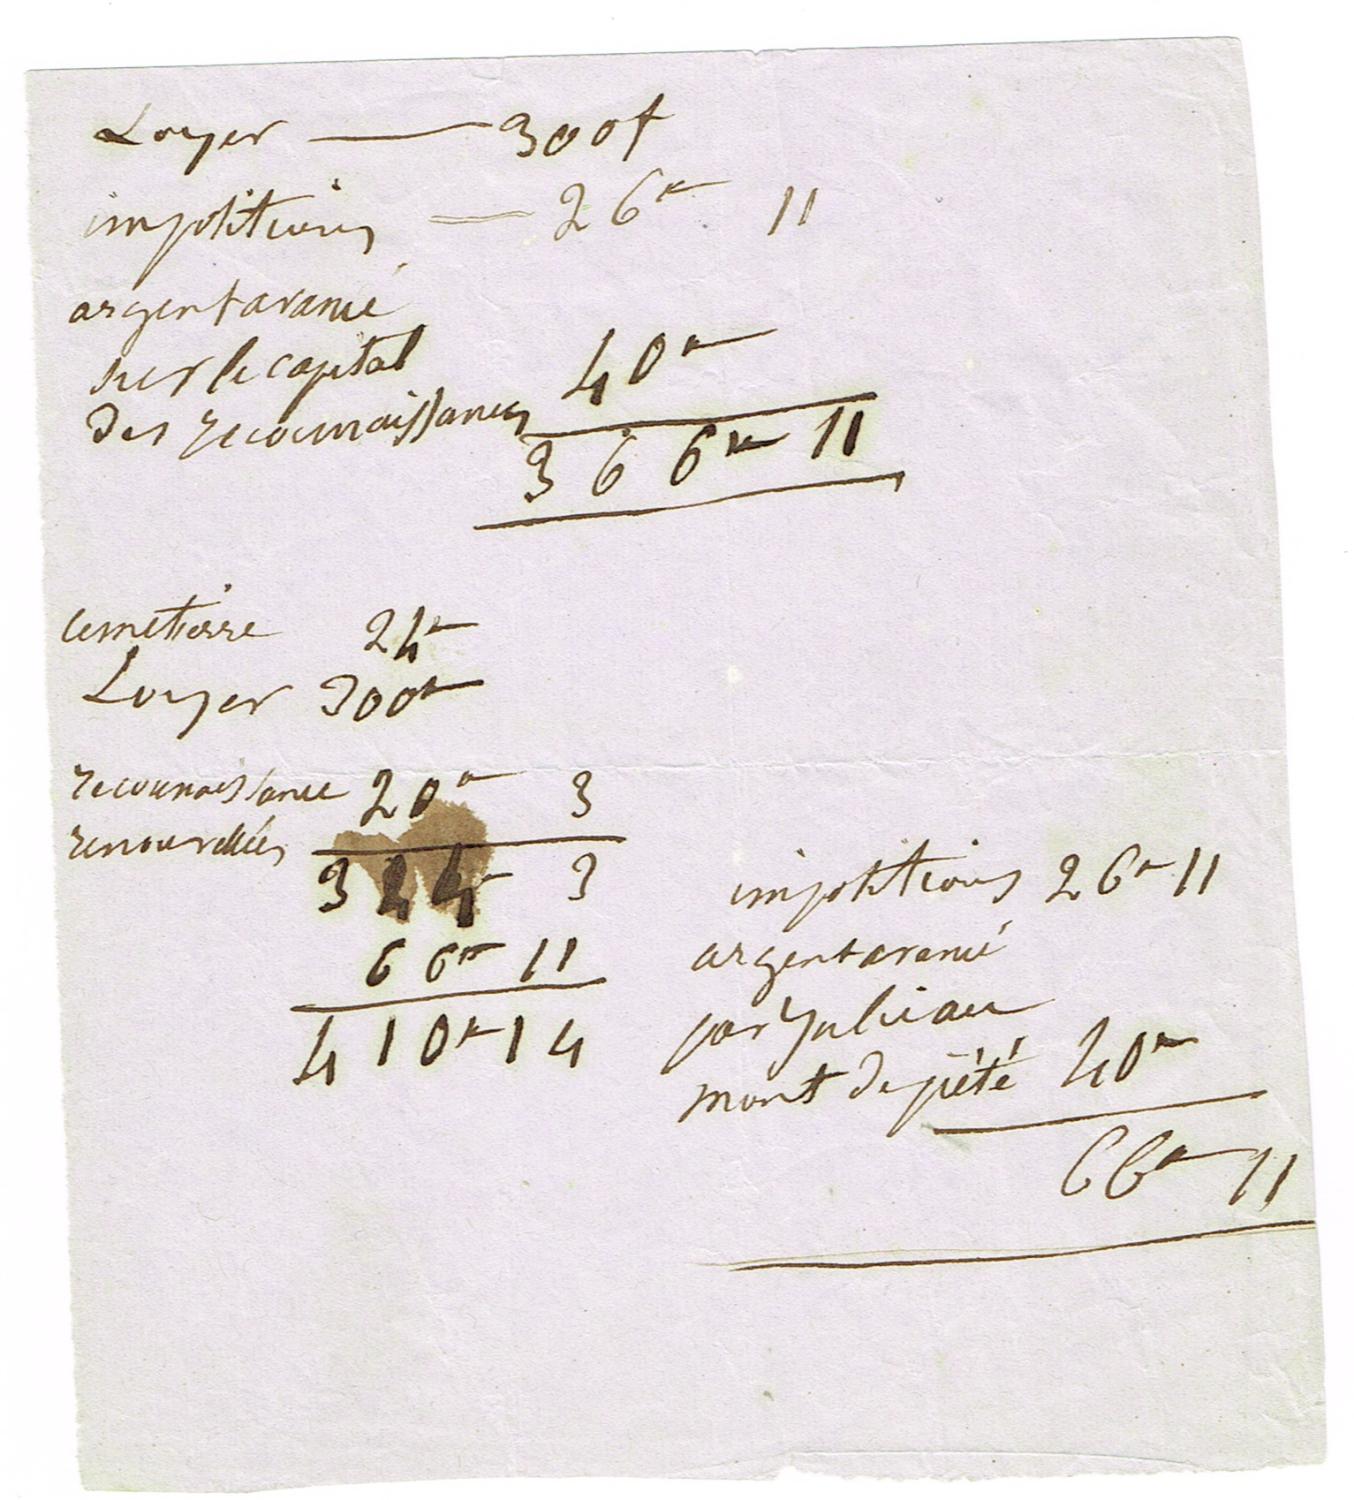 Loyer — 300f
impositions — 26fr 11
argent avancé
sur le capital
des reconnaissances 40fr
366fr 11
cemetierre 24fr
Loyer 300fr
reconnaissance 20fr 3
renouvellées
344fr 3
66fr 11
410fr 14
impositions 26fr 11
argent avancé
par Julie au
mont de piété 40fr
66fr 11